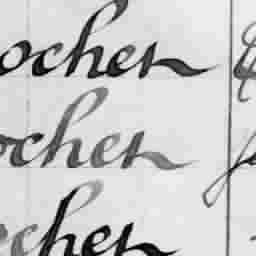 ocher
ocher
ocher